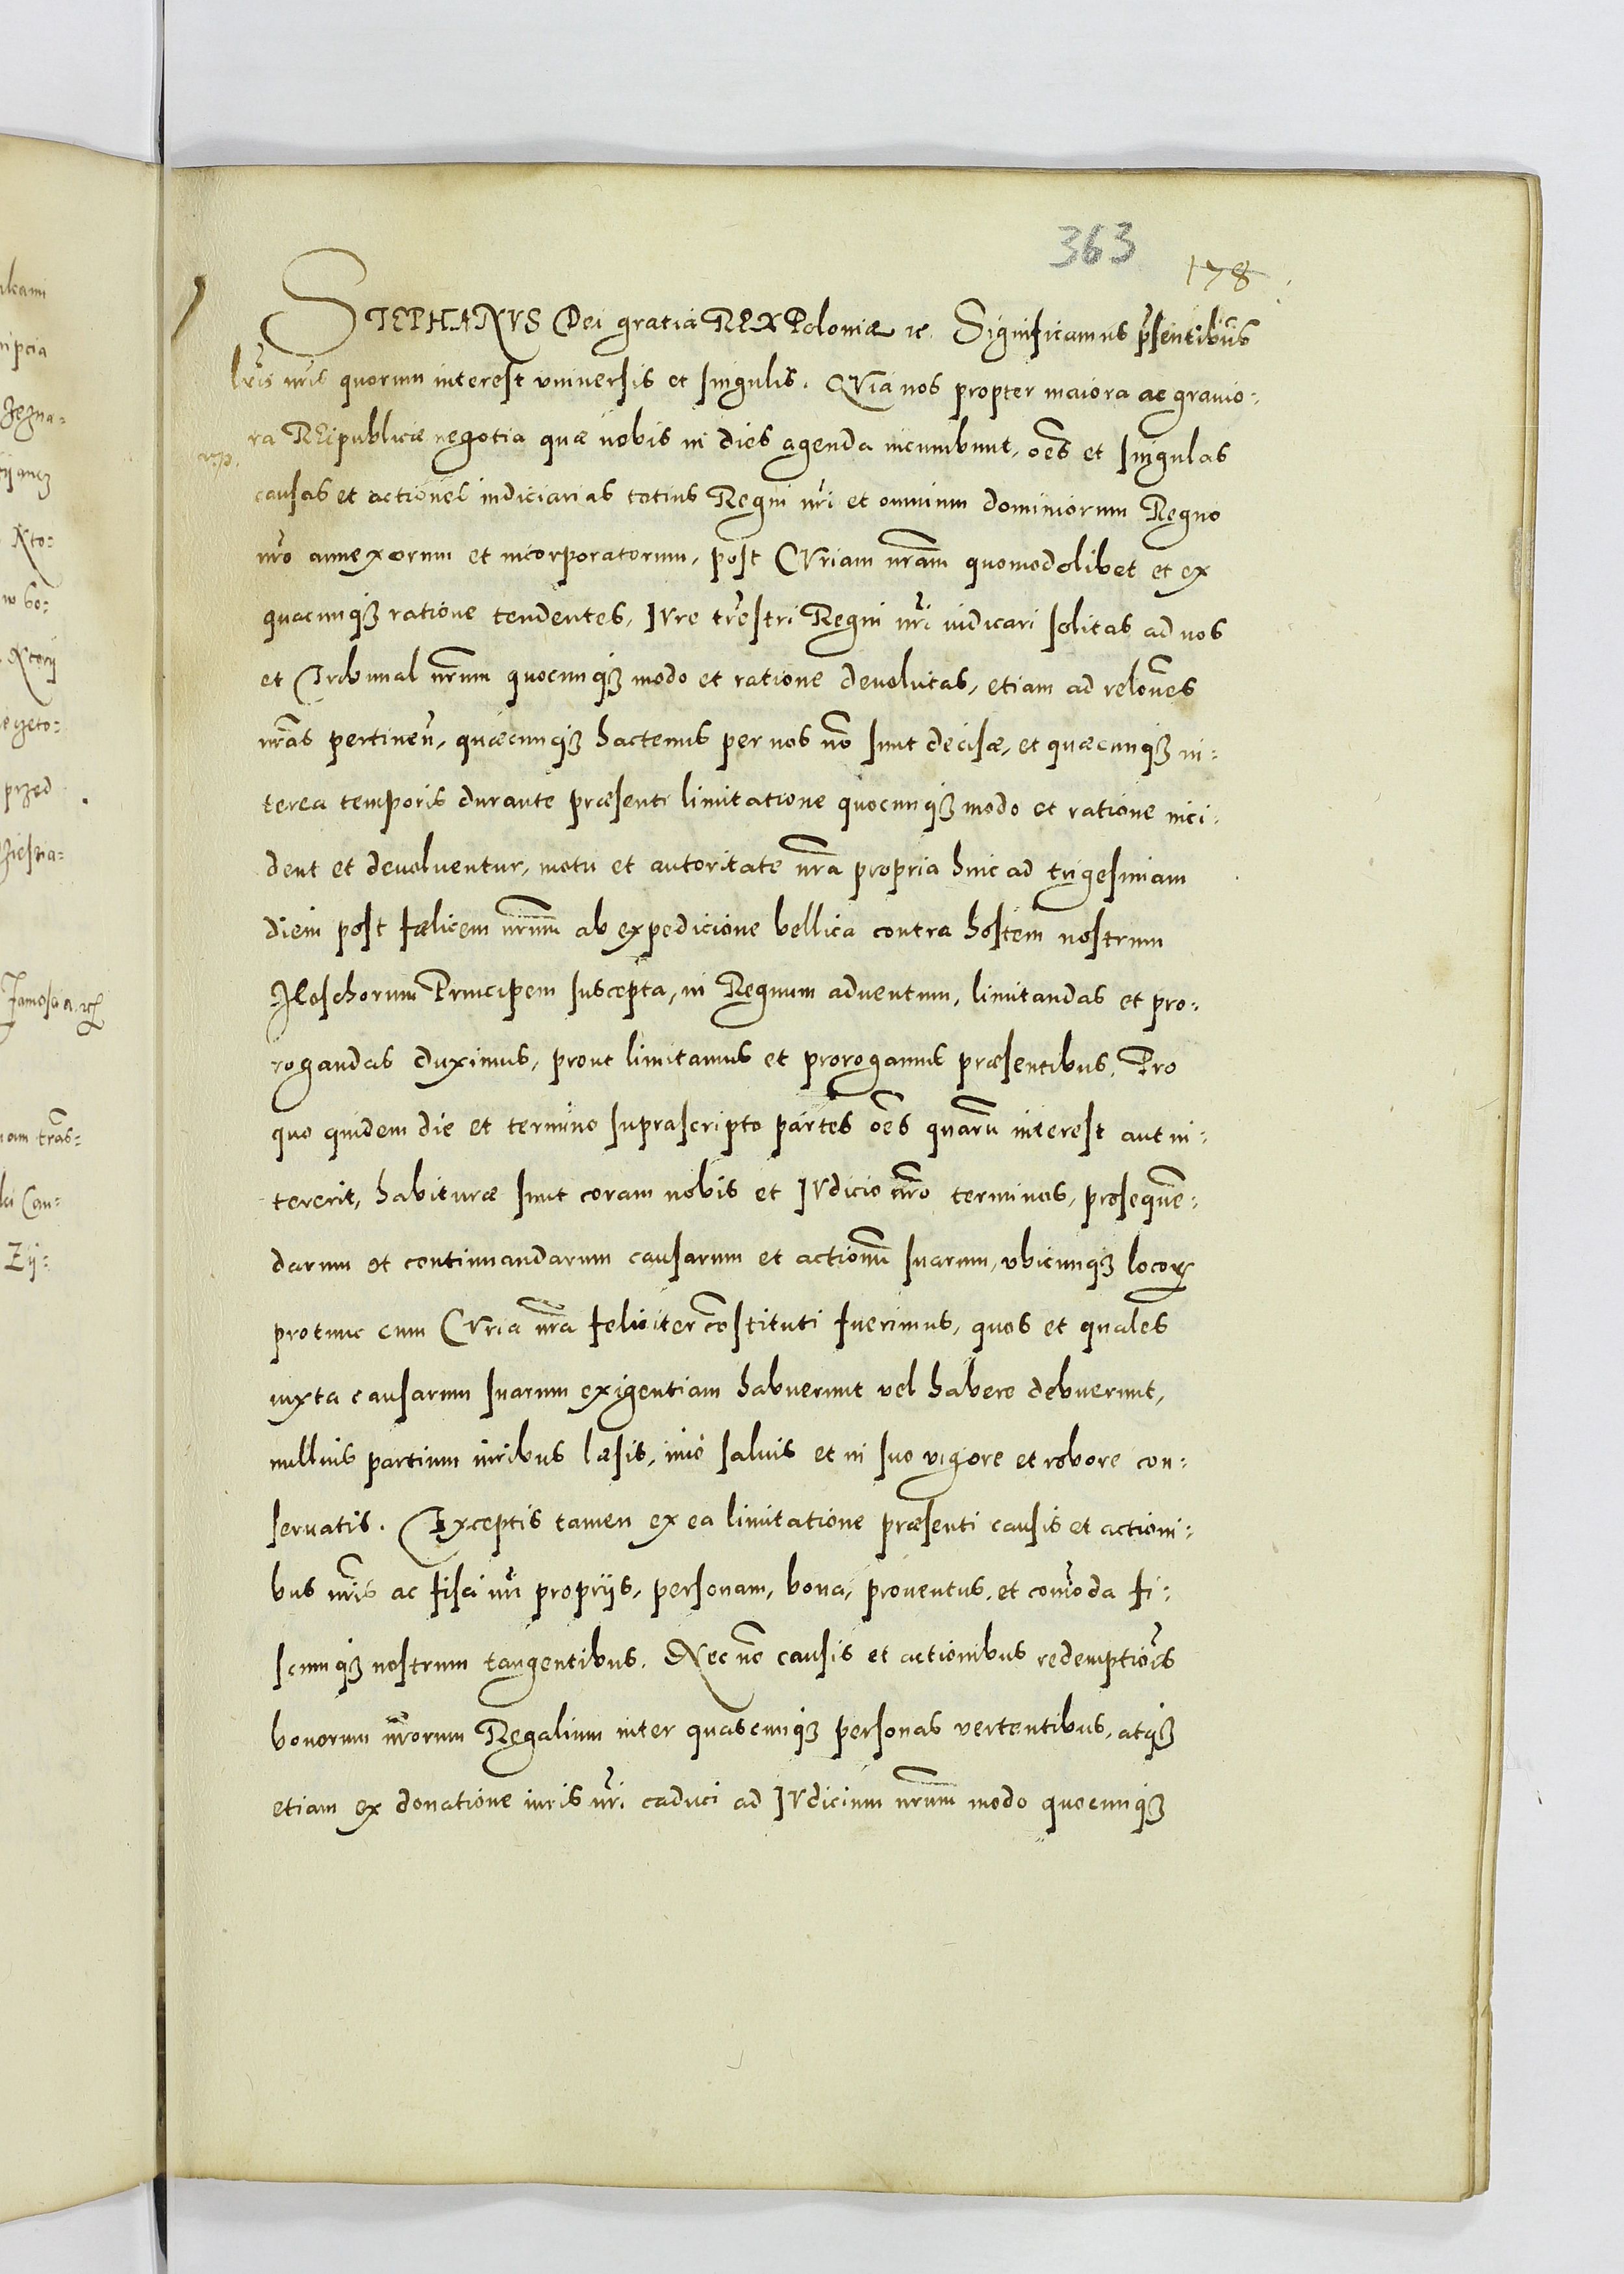 363
178
STEPHANVS Dei gratia REX Poloniæ ꝛc. Significamus p̃sentibus
lr̃is nr̃is quorum interest vniuersis et singulis. QVia nos propter maiora ac grauio:
ra REipublicæ negotia quæ nobis in dies agenda incumbunt, oẽs et singulas
causas et actiones iudiciarias totius Regni nr̃i et omnium dominiorum Regno
nr̃o annexorum et incorporatorum, post CVriam nr̃am quomodolibet et ex
quacunqȝ ratione tendentes, IVre tr̃estri Regni nr̃i iudicari solitas ad nos
et Tribunal nr̃um quocunqȝ modo et ratione deuolutas, etiam ad relõnes
nr̃as pertineñ, quæcunqȝ hactenus per nos nõ sunt decisæ, et quæcunqȝ in:
terea temporis durante præsenti limitatione quocunqȝ modo et ratione inci:
dent et deuoluentur, motu et autoritate nr̃a propria hinc ad trigesimam
diem post fælicem nr̃um ab expedicione bellica contra hostem nostrum
Moschorum Principem suscepta, in Regnum aduentum, limitandas et pro:
rogandas duximus, prout limitamus et prorogamus præsentibus. Pro
quo quidem die et termino suprascripto partes oẽs quarũ interest aut in:
tererit, habituræ sunt coram nobis et IVdicio nr̃o terminos, prosequẽ:
darum et continuandarum causarum et actionũ suarum, vbicunqȝ locoꝝ
protunc cum CVria nr̃a feliciter cõstituti fuerimus, quos et quales
iuxta causarum suarum exigentiam habuerunt vel habere debuerunt,
nullius partium iuribus læsis, imo saluis et in suo vigore et robore con:
seruatis. Exceptis tamen ex ea limitatione præsenti causis et actioni:
bus nr̃is ac fisci nr̃i proprijs, personam, bona, prouentus, et com̃oda fi:
scumqȝ nostrum tangentibus. Nec nõ causis et actionibus redemptiõis
bonorum nr̃orum Regalium inter quascunqȝ personas vertentibus, atqȝ
etiam ex donatione iuris nr̃i caduci ad IVdicium nr̃um modo quocunqȝ